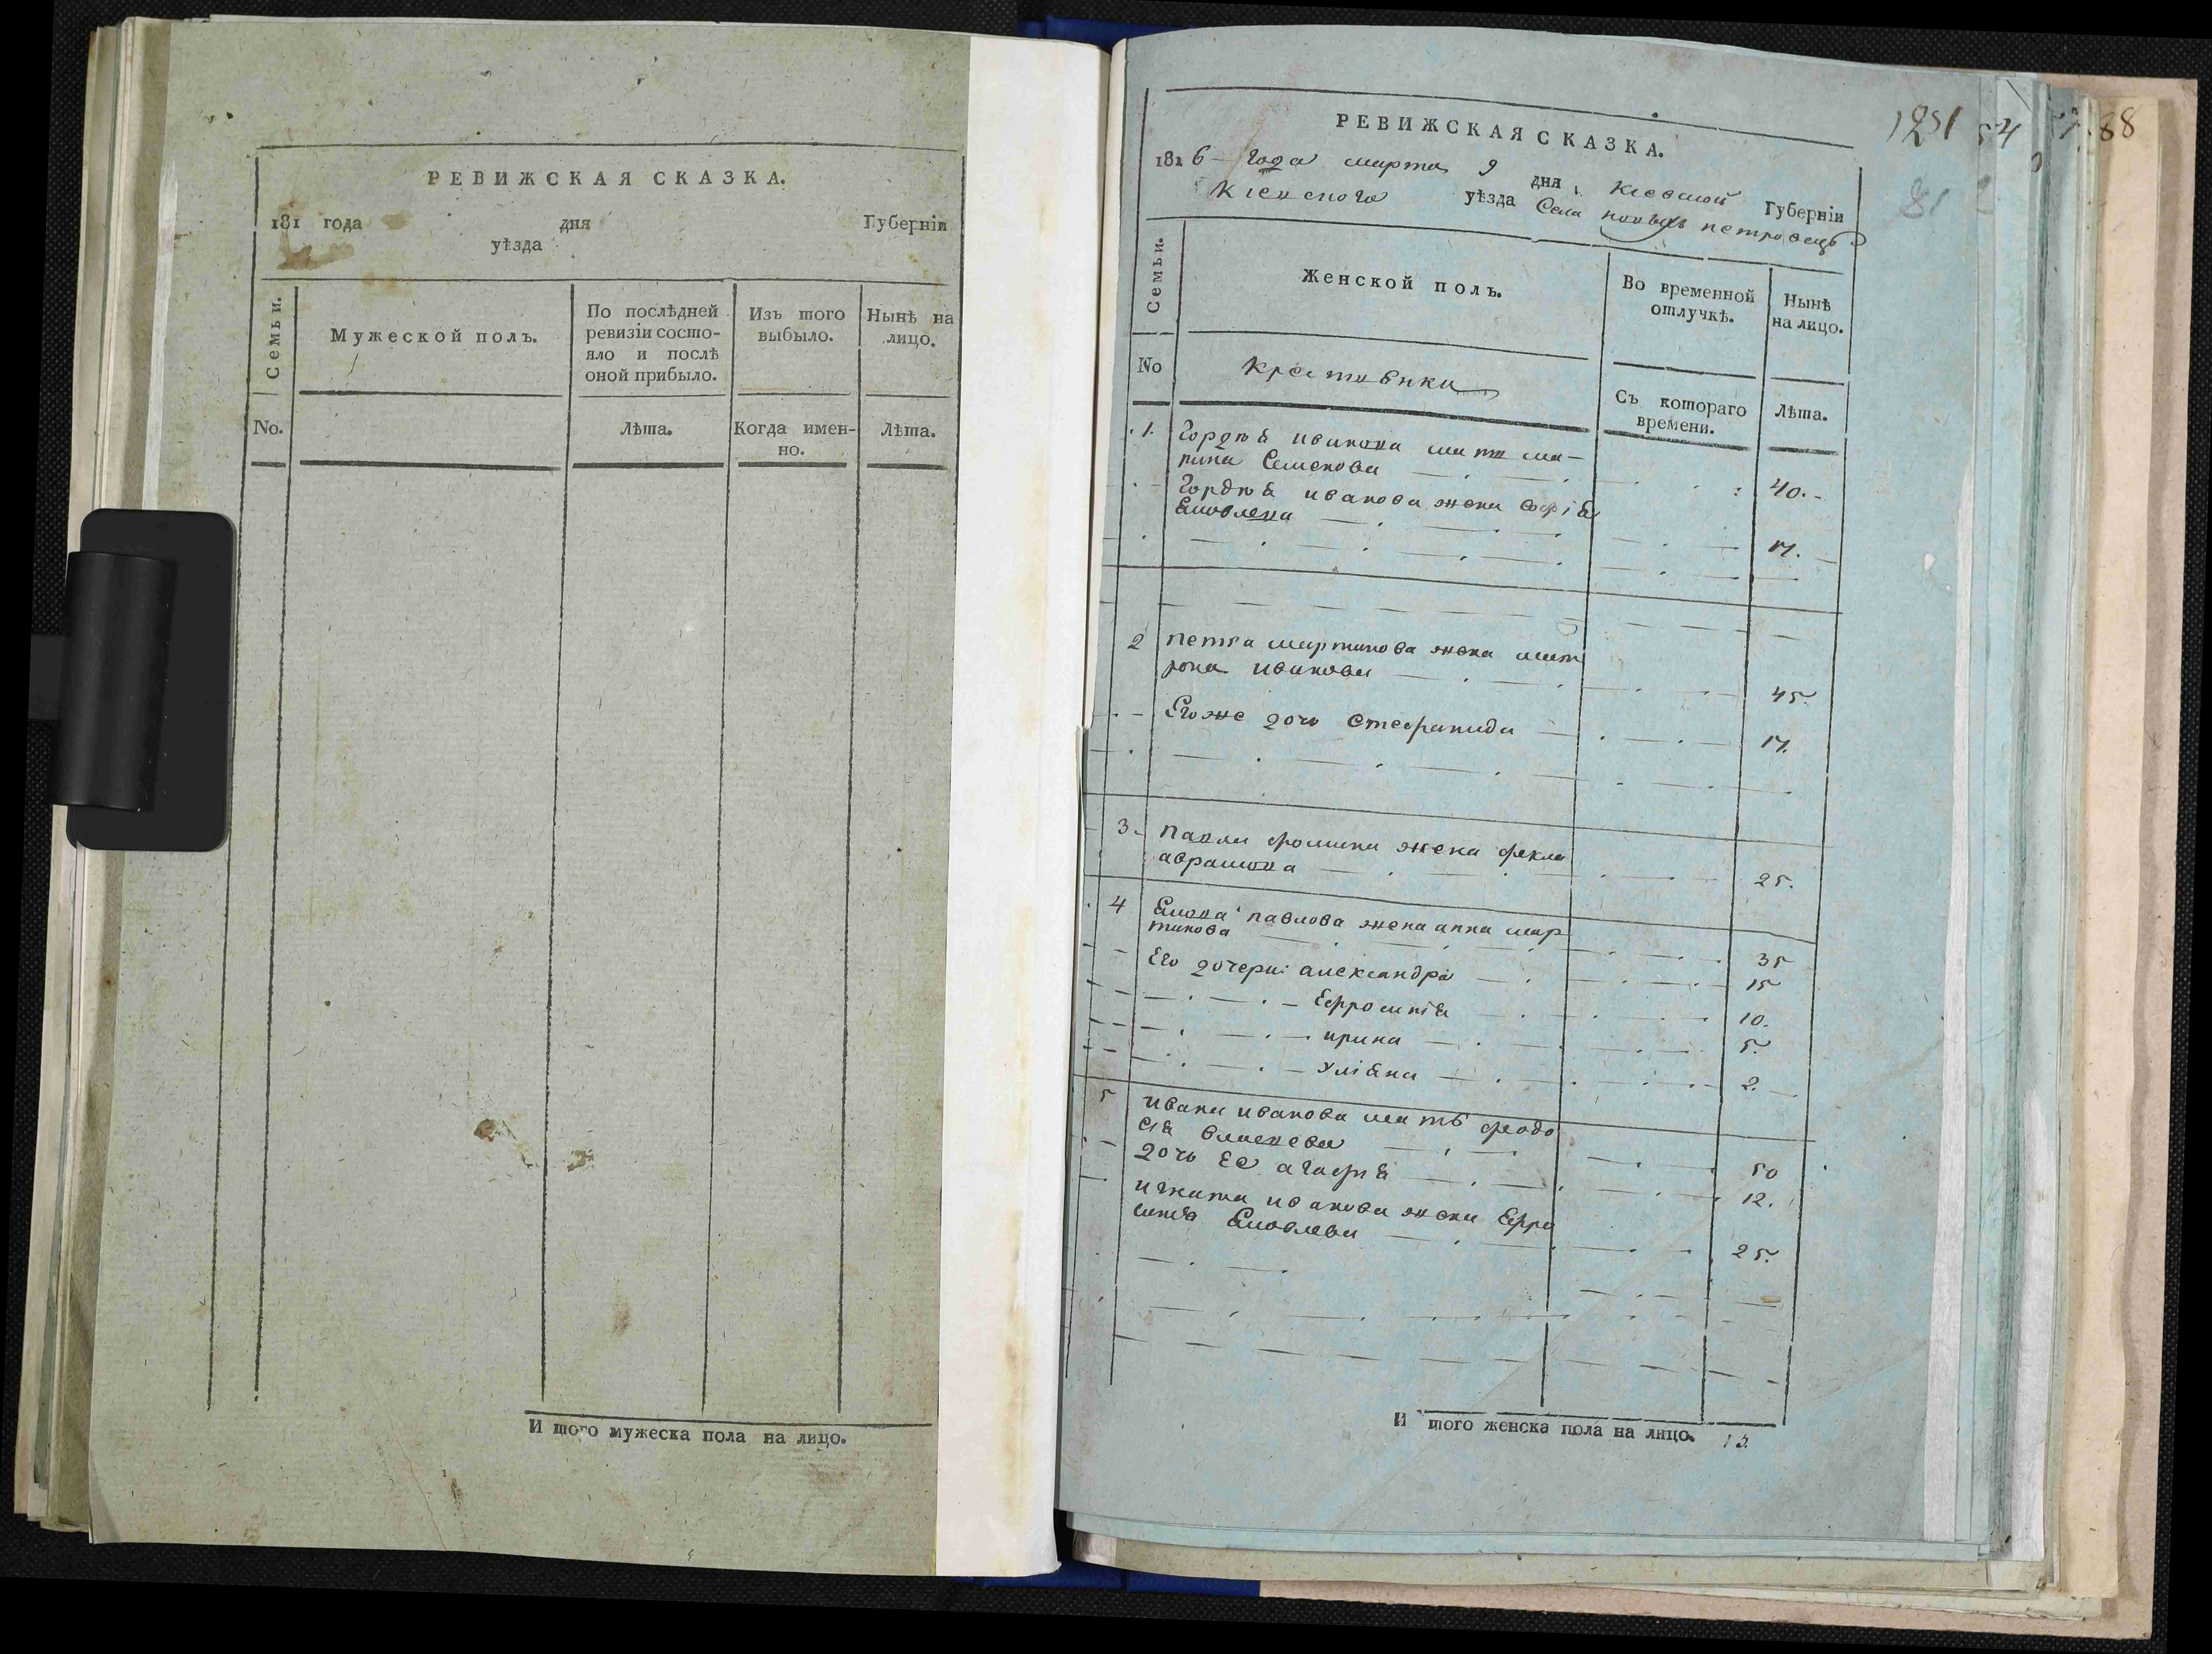 РЕВИЖСКАЯ СКАЗКА.
181 года дня Губерніи
уѣзда
Семьи.
Мужеской полъ.
По послѣдней ревизіи состо-
яло и послѣ
оной прибыло.
Изъ того
выбыло.
Нынѣ на
лицо.
No.
Лѣта.
Когда имен-
но.
Лѣта.
И того мужеска пола на лицо.
1251 54 88
81
РЕВИЖСКАЯ СКАЗКА.
1816 года марта 9 дня Кіевской Губерніи
Кіевского уѣзда Села новыхъ петровецъ
Семьи.
Женской полъ.
Во временной
отлучкѣ.
Нынѣ
на лицо.
No
Крестьянки
Съ котораго
времени.
Лѣта.
1. Гордѣя иванова мать ма-
рина Семенова 40.
Гордѣя иванова жена Софія
Яковлева 17.
2 петра мартинова жена мат
рона иванова 45
Егоже дочь Стефанида 17.
3. павла фомина жена фекла
абрамова 25.
4 Якова павлова жена анна мар
тинова 35
Его дочери: александра 15
Ефросинія 10.
ирина 5.
Уліяна 2.
5 ивана иванова мать феодо
сія власова 50
дочь Ее агафія 12.
игната иванова жена Ефро
синія Яковлева 25.
И того женска пола на лицо. 13.